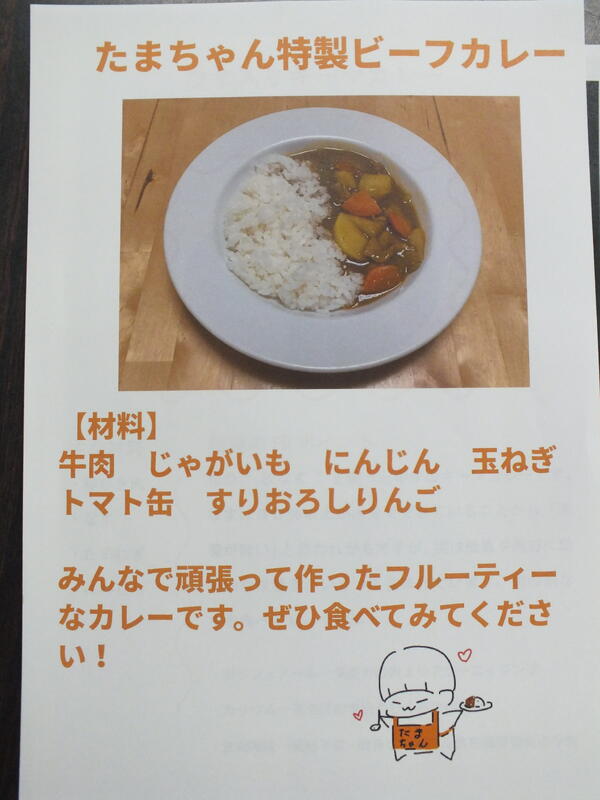 たまちゃん特製ビーフカレー
【材料】
牛肉　じゃがいも　にんじん　玉ねぎ
トマト缶　すりおろしりんご
みんなで頑張って作ったフルーティー
なカレーです。ぜひ食べてみてくださ
い！
たま
ちゃん